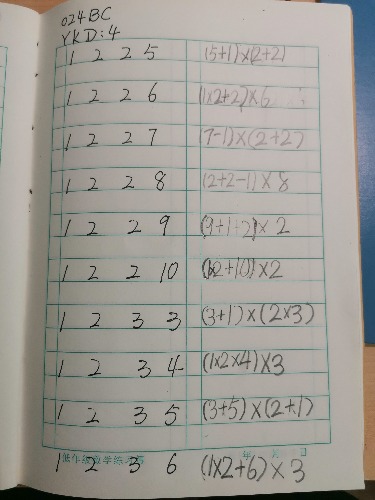 024BC
YKD:4
1 2 2 5 (5+1)×(2+2)
1 2 2 6 (1×2+2)×6
1 2 2 7 (7-1)×(2+2)
1 2 2 8 (2+2-1)×8
1 2 2 9 (9+1+2)×2
1 2 2 10 (1×2+10)×2
1 2 3 3 (3+1)×(2×3)
1 2 3 4 (1×2×4)×3
1 2 3 5 (3+5)×(2+1)
低年级数学练习 年 月 日
1 2 3 6 (1×2+6)×3